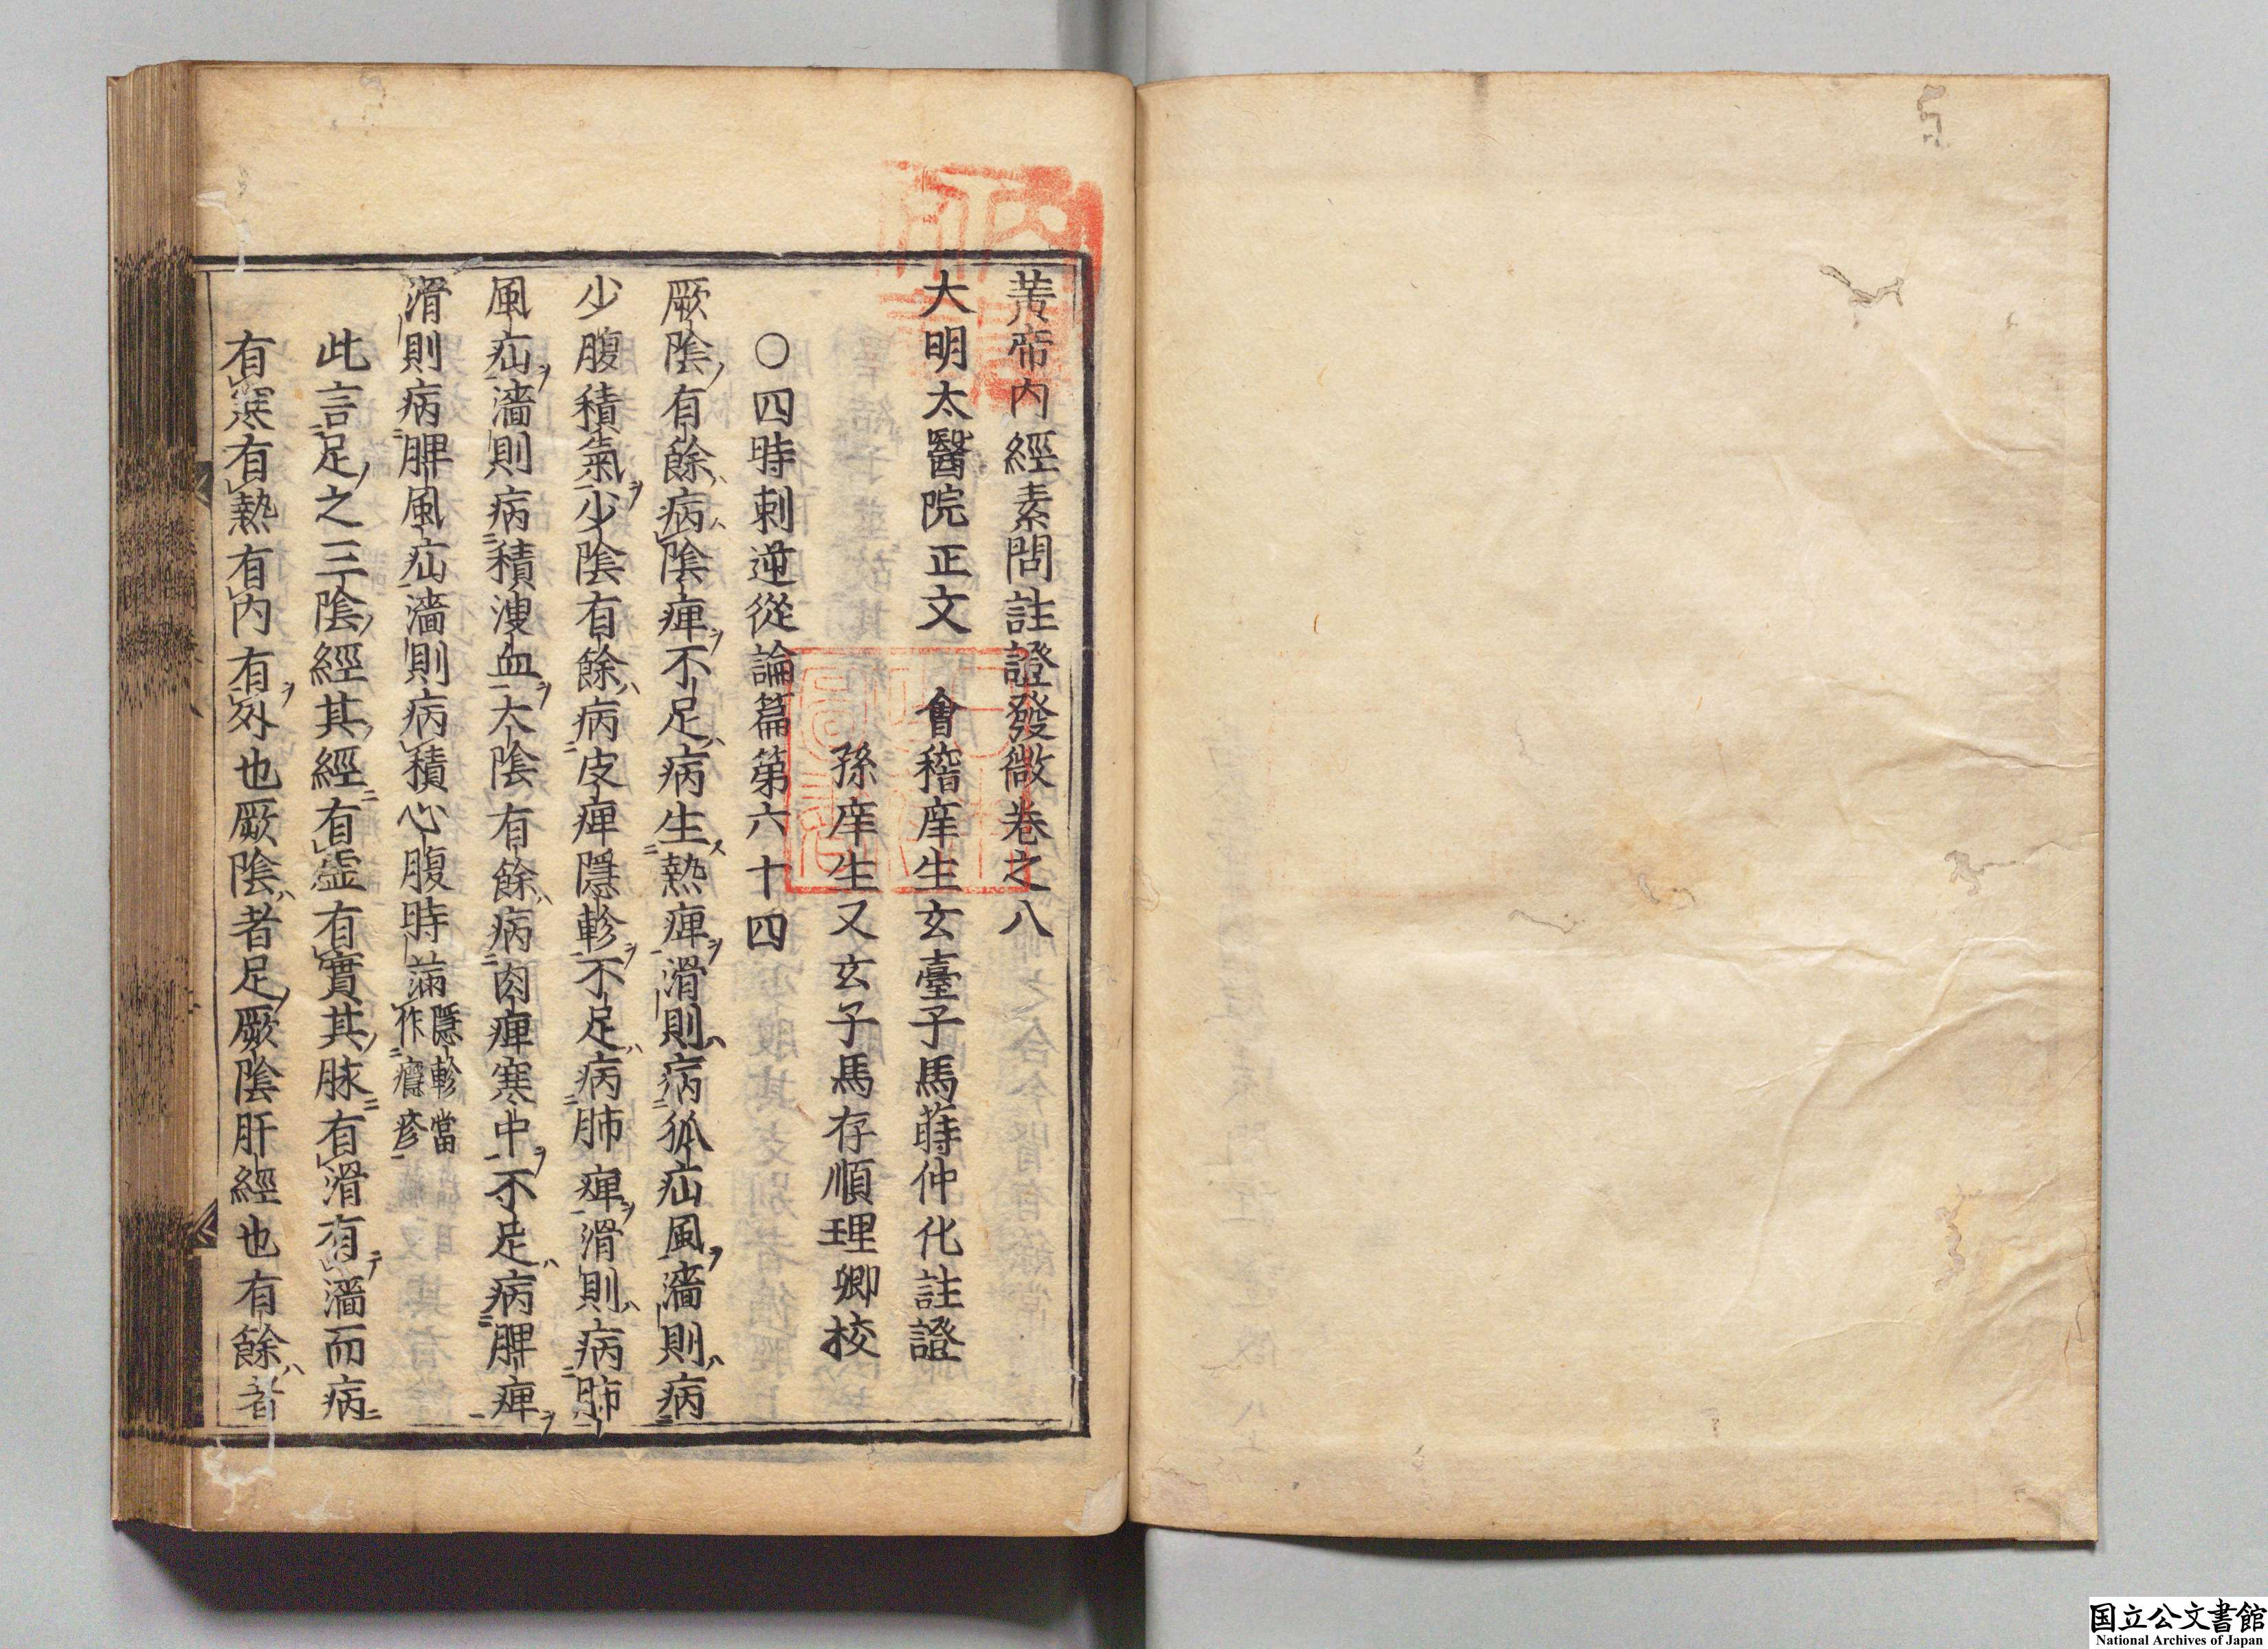 黄帝内經素問註證發微卷之八
大明太醫院正文　會稽庠生玄臺子馬蒔仲化註證
孫庠生又玄子馬存順理卿校
○四時刺逆從論篇第六十四
厥陰有餘病陰痺不足病生熱痺滑則病狐疝風濇則病
少腹積氣少陰有餘病皮痺隱軫不足病肺痺滑則病肺
風疝濇則病積溲血太陰有餘病肉痺寒中不足病脾痺
滑則病脾風疝濇則病積心腹時滿隱軫當作癮疹
此言足之三陰經其經有虛有實其脉有滑有濇而病
有寒有熱有内有外也厥陰者足厥陰肝經也有餘者
国立公文書館
National Archives of Japan